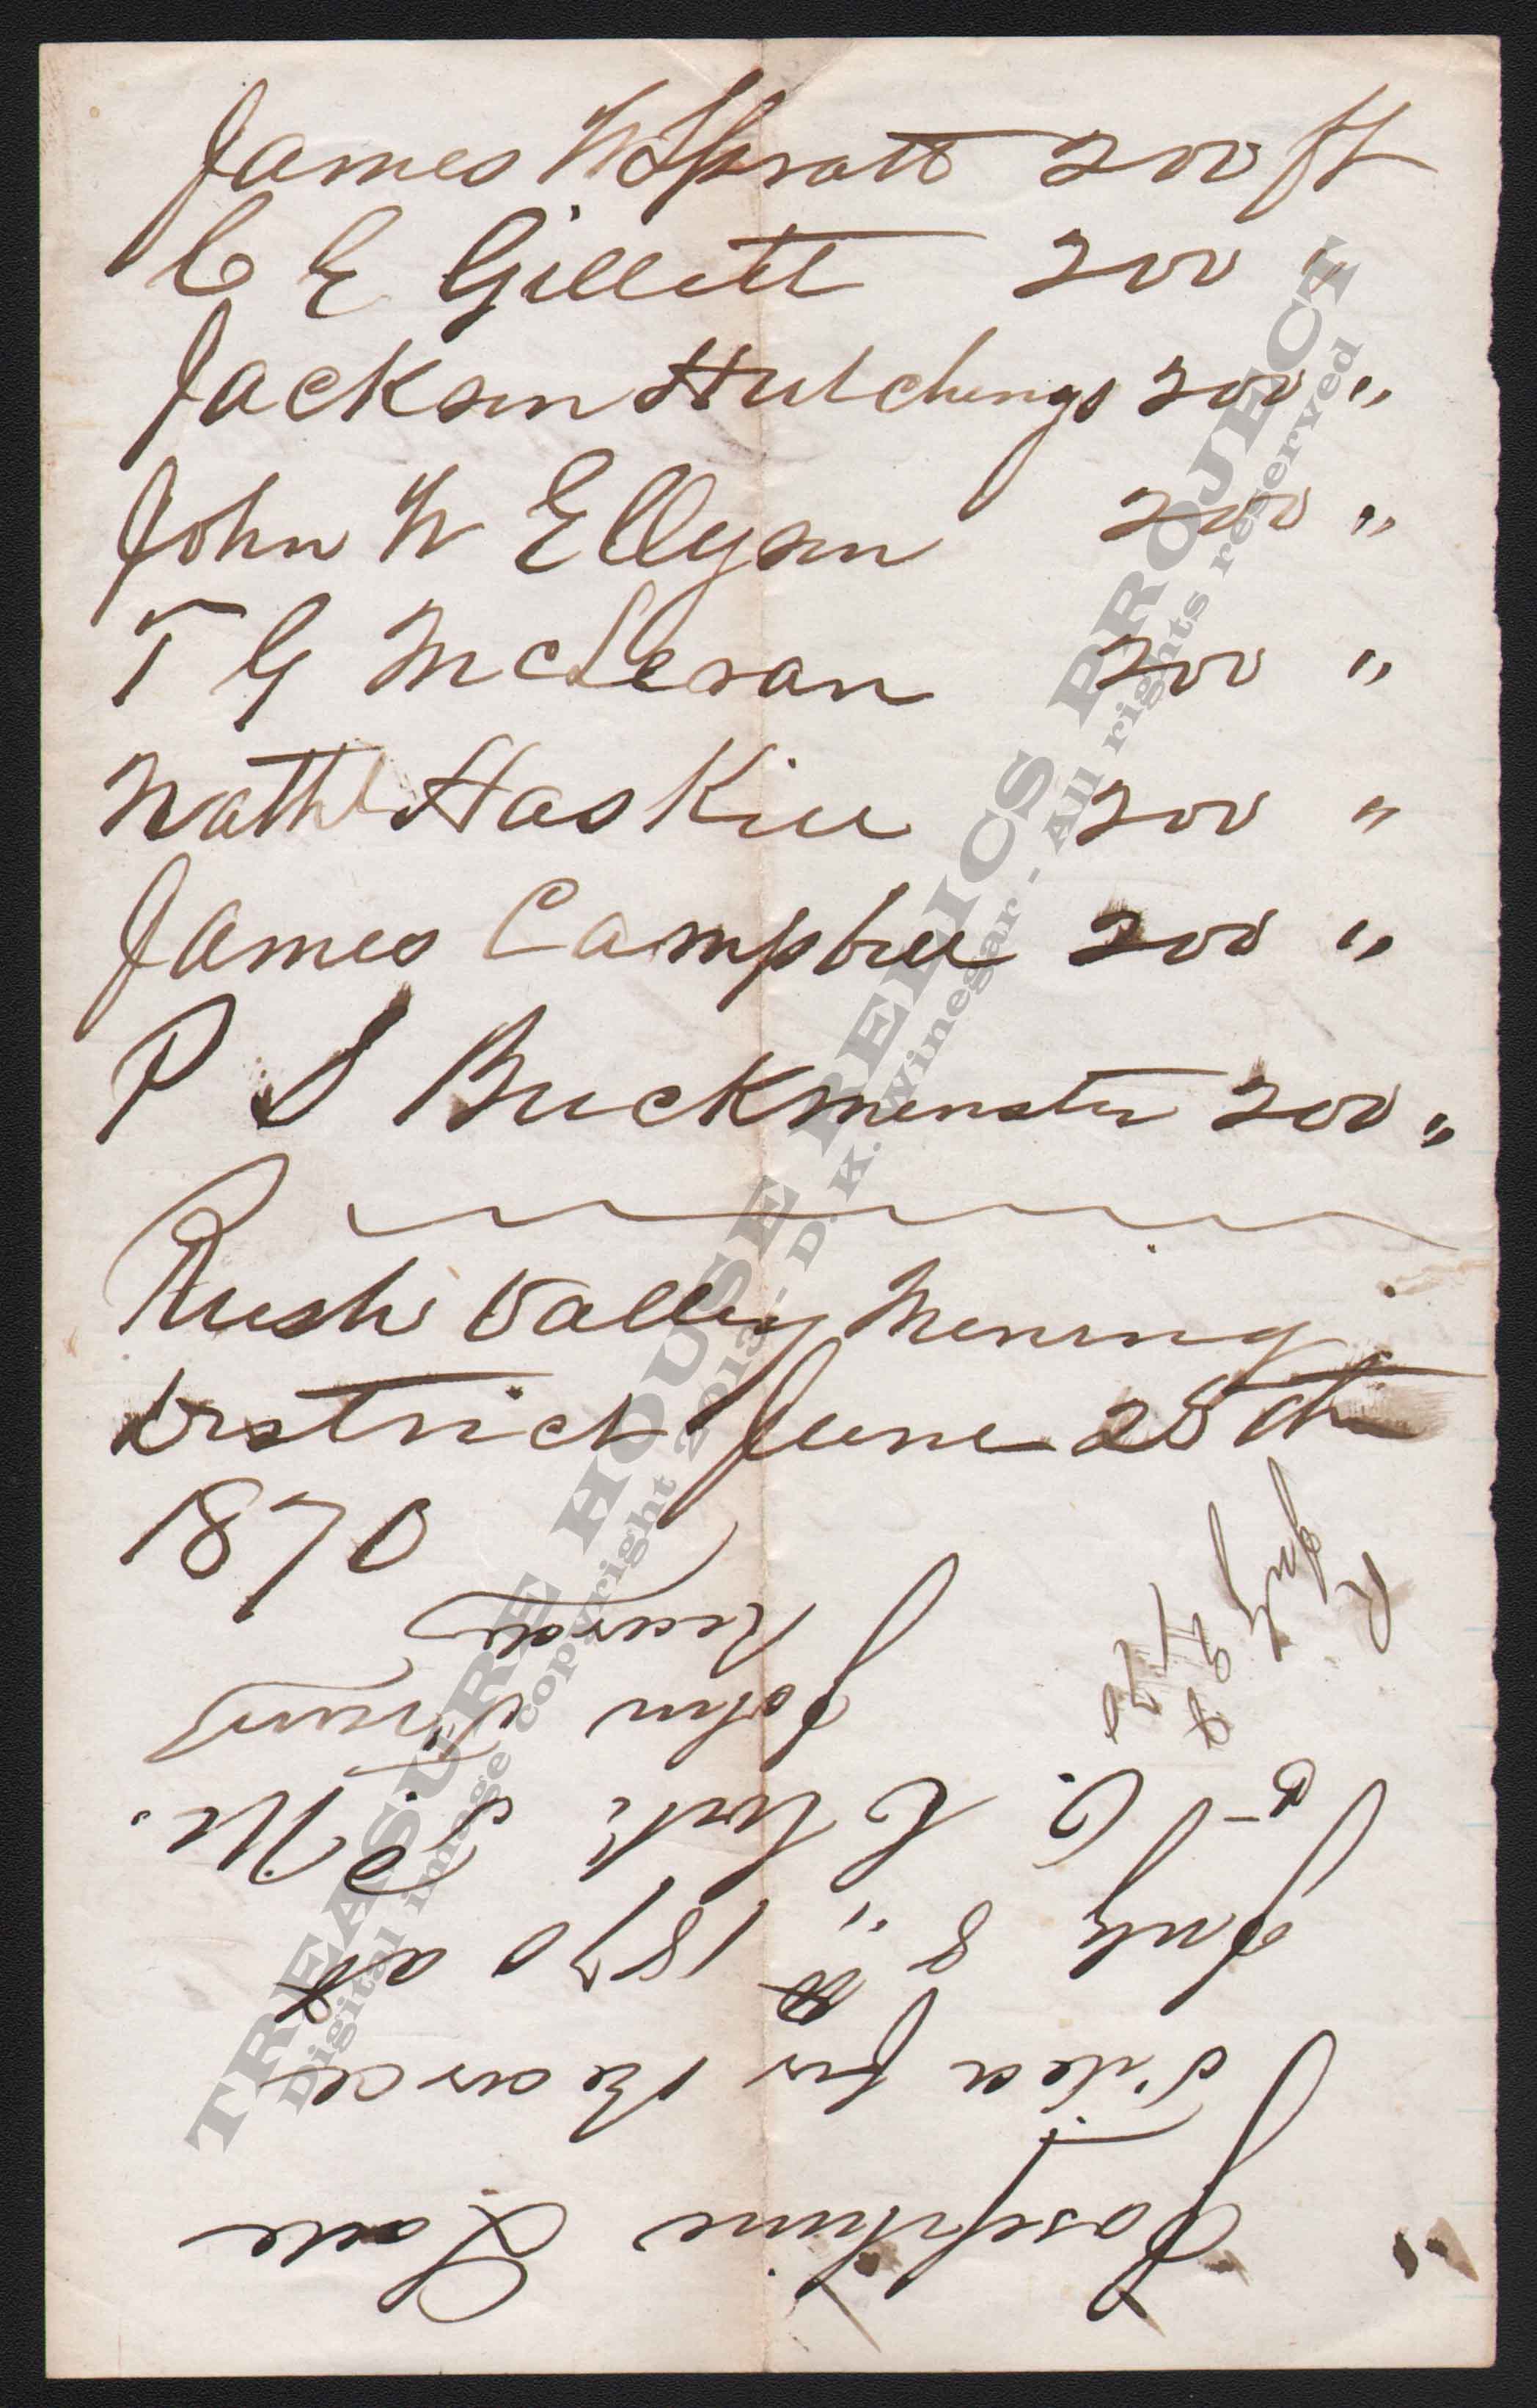 James W Spratt 200 ft
C E Gillett 200 "
Jackson Hutchings 200 "
John W Ellyson 200 "
T G McLeran 200 "
Nathl Haskill 200 "
James Campbell 200 "
P S Buckmenster 200 "
Rush Valley Mening
District June 28th
1870
"Josephine Lode
Filed for Record
July 8" 1870 at
O'C. P.M.
John
Recorder
TREASURE HOUSE RELICS PROJECT
Digital image copyright 2013 - D. K. Winegar - All rights reserved